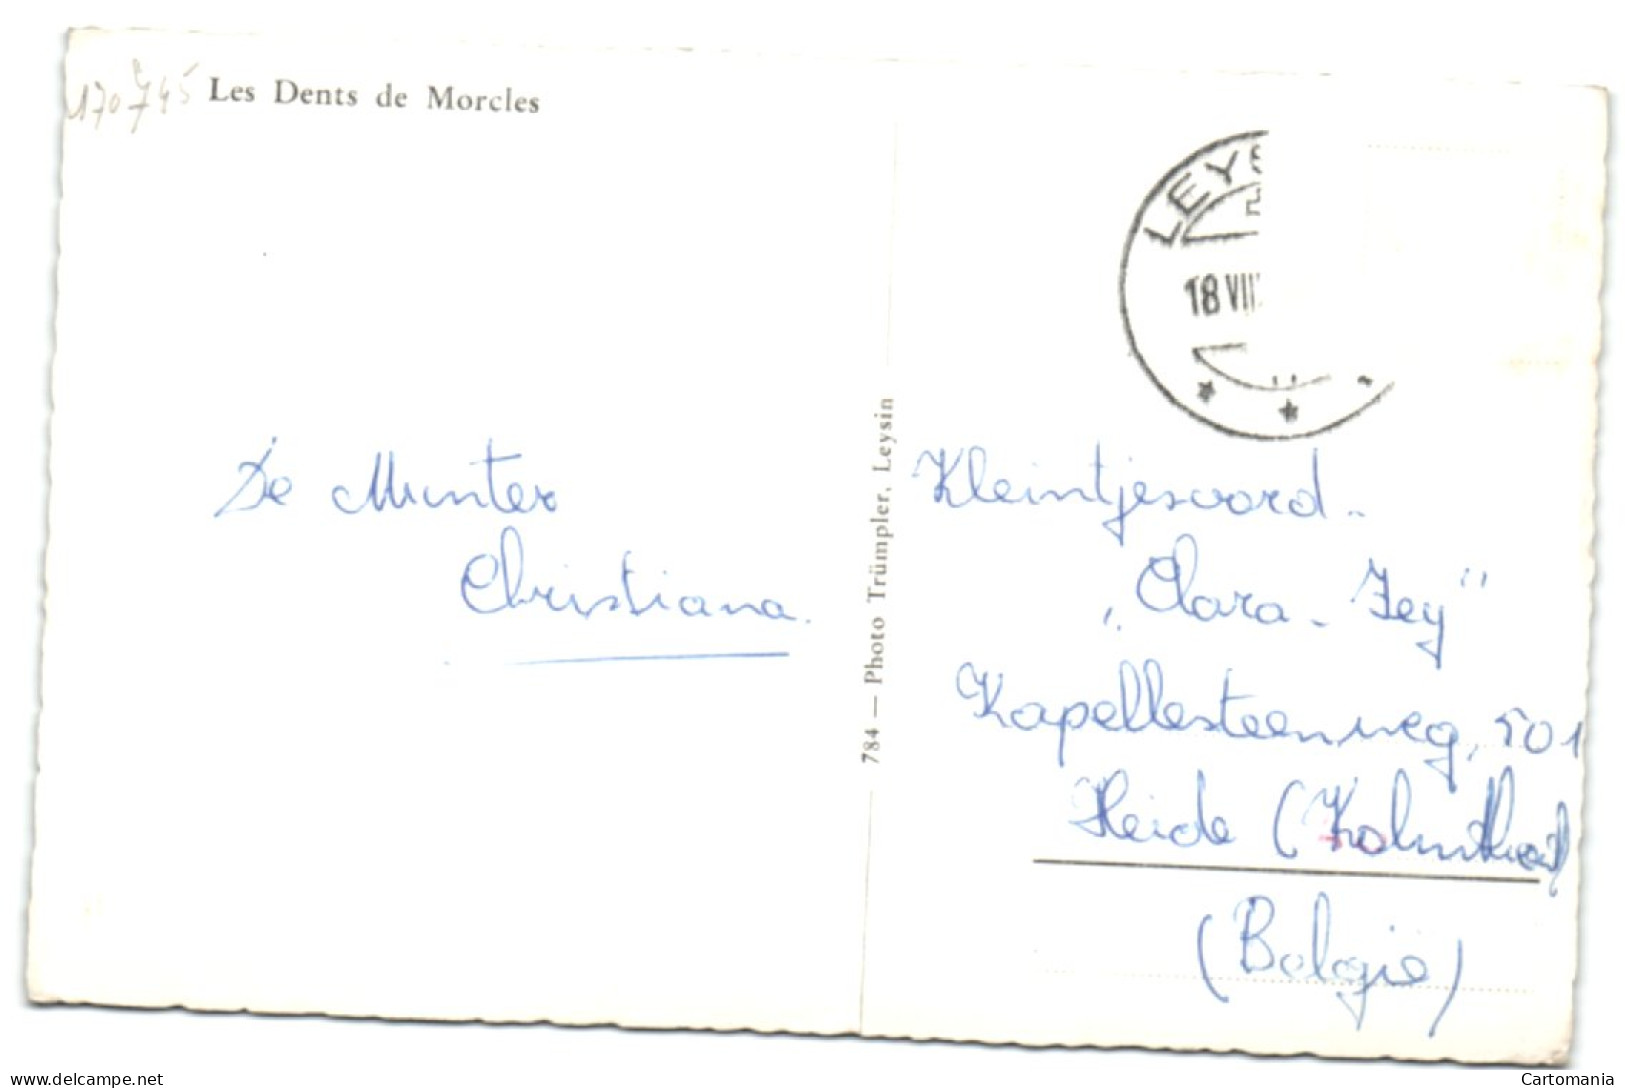 170745
Les Dents de Morcles
LEYS
18 VIII
De Munter
Christiana.
784 — Photo Trümpler, Leysin
Kleintjesoord-
„Clara - Fey"
Kapellesteenweg, 501
Heide (Kalmthout)
(Belgie)
delcampe.net
Cartomania